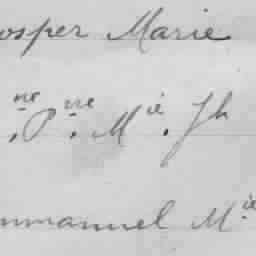 osper Marie
ne. Pre. Mie. Jh
mmanuel Mie